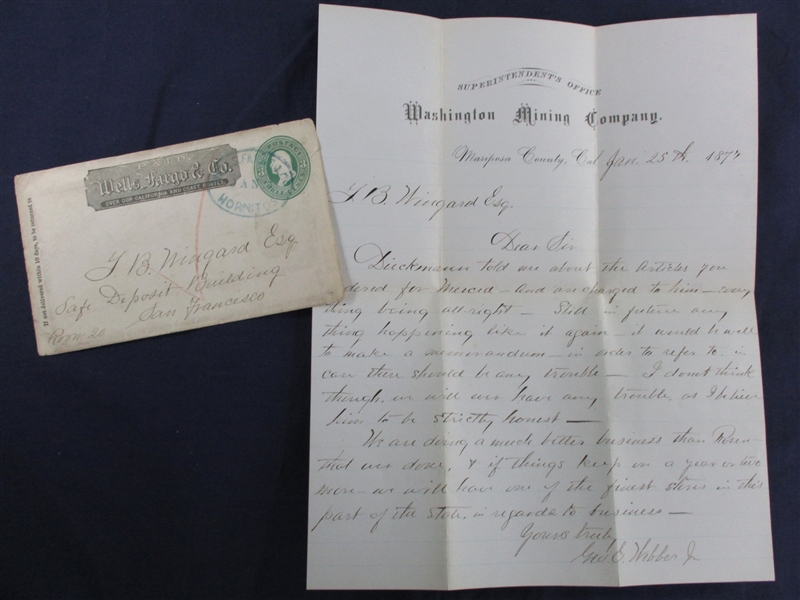 PAID
Wells, Fargo & Co.
OVER OUR CALIFORNIA AND COAST ROUTES
HORNITOS
If not delivered within 10 days, to be returned to
J B. Wingard Esq
Safe Deposit Building
San Francisco
Room 20
SUPERINTENDENT'S OFFICE
Washington Mining Company.
Mariposa County, Cal Jan. 25th 1874
J. B. Wingard Esq.
Dear Sir
Dieckmann told me about the articles you
ordered for Merced – and are charged to him – every
thing being all right – Still in future any
thing happening like it again – it would be well
to make a memorandum – in order to refer to – in
case there should be any trouble – I don't think
though, we will ever have any trouble, as I believe
him to be strictly honest –
We are doing a much better business than Rosen-
thal ever done, & if things keep on a year or two
more – we will have one of the finest stores in this
part of the State, in regards to business –
Yours truly
Geo. E. Webber Jr